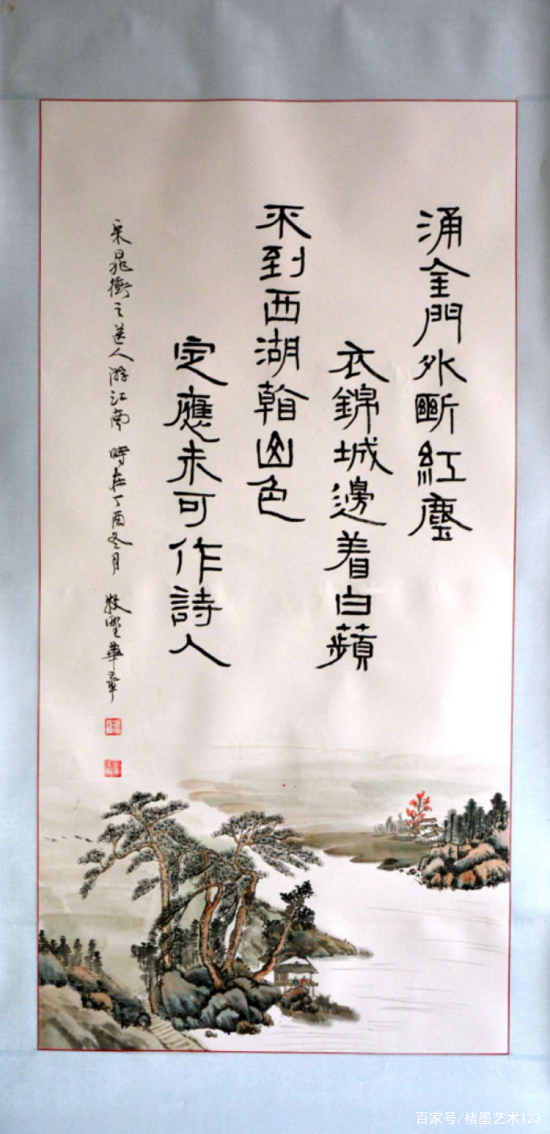 涌金門外斷紅塵
衣錦城邊着白蘋
不到西湖看山色
定應未可作詩人
宋晁衝之送人游江南 時在丁酉冬月 牧野華章
百家号/楮墨艺术123